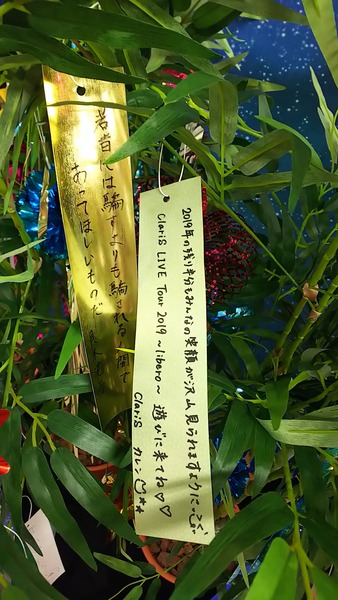 若者には騙すよりも騙される側で
あってほしいものだ
2019年の残り半分もみんなの笑顔が沢山見られますように
ClariS LIVE Tour 2019 ~libero~ 遊びに来てね♡♡
ClariS カレン